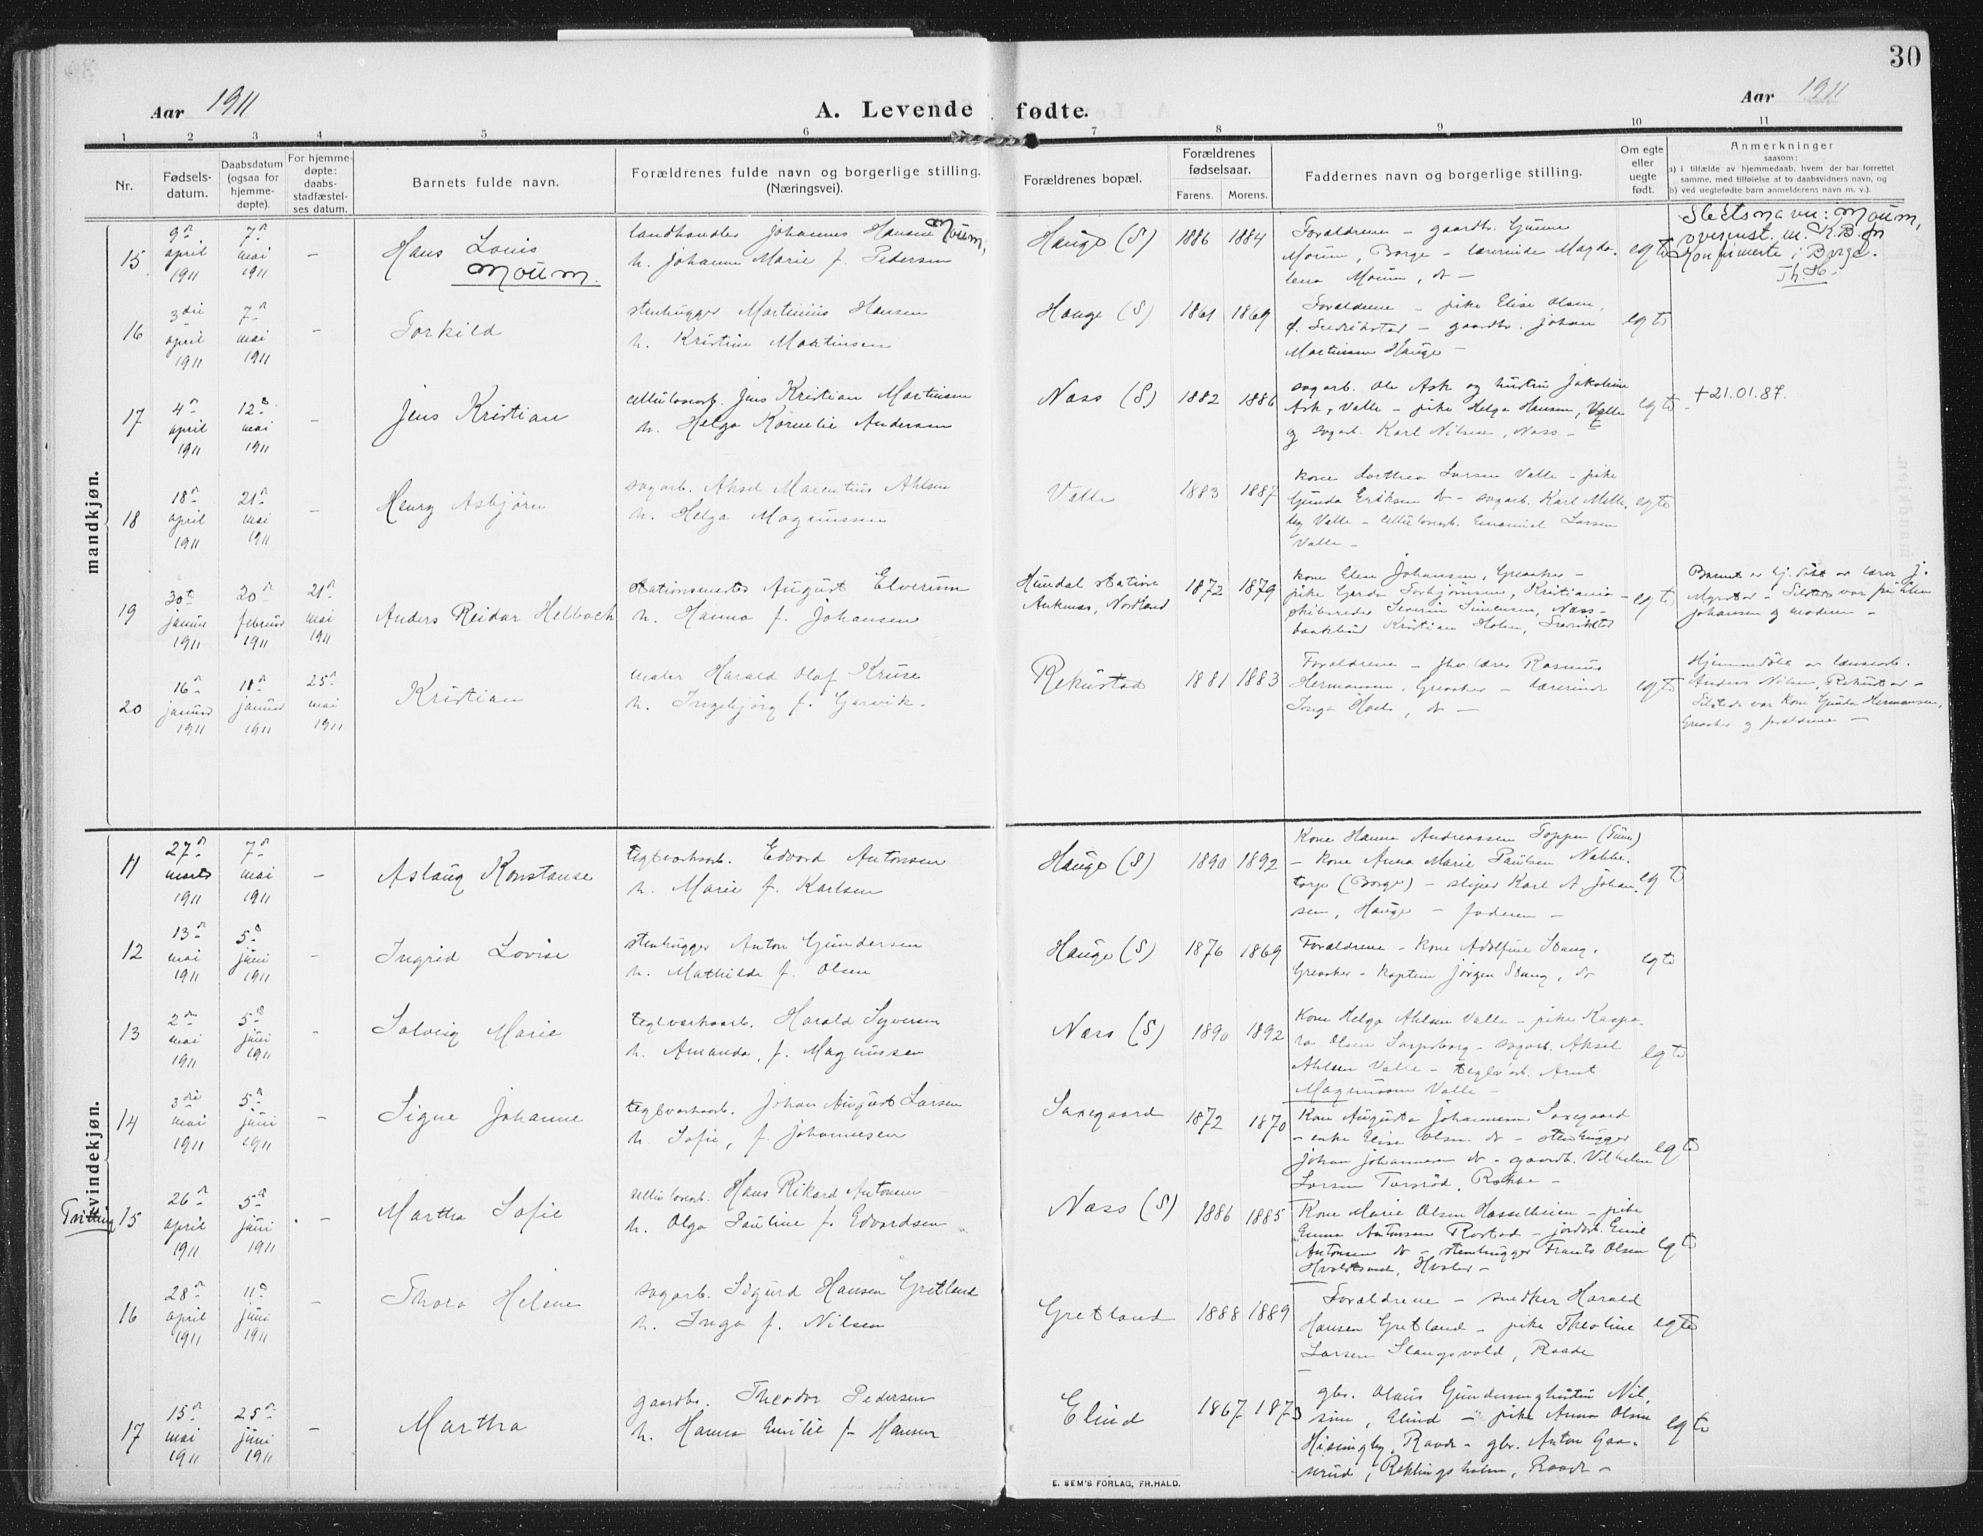 30
Aar 1911
A. Levende fødte.
Aar 1911
1 2 3 4 5 6 7 8 9 10 11
Nr.
Fødsels-
datum.
Daabsdatum
(ogsaa for
hjemme-
døpte).
For hjemme-
døpte:
daabs-
stadfæstel-
ses datum.
Barnets fulde navn.
Forældrenes fulde navn og borgerlige stilling.
(Næringsvei).
Forældrenes bopæl.
Forældrenes
fødselsaar.
Farens. Morens.
Faddernes navn og borgerlige stilling.
Om egte
eller
uegte
født.
Anmerkninger
saasom:
a) i tilfælde av hjemmedaab, hvem der har forrettet
samme, med tilføielse af to daabsvidners navn, og
b) ved uegtefødte barn anmelderens navn m. v.).
mandkjøn.
15
9de april 1911
7de mai 1911
-
Hans Louis
Moum.
landhandler Johannes Hansen Moum,
h. Johanne Marie f. Pedersen
Hauge (S)
1886 1884
Forældrene - gaardbr. Gunnar
Moum, Borge - lærerinde Magda-
lena Moum, do -
egte
Slektsnavn: Moum,
overenst. m. K.B. for
Konfirmerte i Borge.
Th. H.
16
3die april 1911
7de mai 1911
-
Torkild
stenhugger Martinius Hansen
h. Kristine Martinsen
Hauge (S)
1861 1869
Forældrene - pike Elise Olsen,
Fredrikstad - gaardbr. Johan
Martinsen Hauge -
egte
17
4de april 1911
12te mai 1911
-
Jens Kristian
cellulosearb. Jens Kristian Martinsen
h. Helga Kornelie Andersen
Næss (S)
1882 1886
sagarb. Ole Ask og hustru Jakobine
Ask, Valle - pike Helga Hansen, Valle
og sagarb. Karl Nilsen, Næss -
egte
+ 21.01.87.
18
18de april 1911
21de mai 1911
-
Henry Asbjørn
sagarb. Aksel Marentius Ahlsen
h. Helga Magnussen
Valle
1883 1887
kone Dorthea Larsen Valle - pike
Gunda Eriksen do - sagarb. Karl
Valle - cellulosearb. Emanuel Larsen
Valle -
egte
19
30te januar 1911
20de februar 1911
21de mai 1911
Anders Reidar Helbæck
stationsmester August Elverum
h. Hanna f. Johansen
Hundal station
Ankenes, Nordland
1872 1879
kone Elen Johansen, Greaaker -
pike Gerda Torbjørnsen, Kristiania -
skibsreder Severin Simensen, Næss -
Kristian Holm, Fredriksta
egte
Barnet er hj. døbt av lærer J.
-
Johansen og moderen -
20
16de januar 1911
18de januar 1911
25de mai 1911
Kristian
maler Harald Olaf Kruse
h. Ingebjørg f. Gjervik.
Rekustad
1881 1883
Forældrene - fhv. lærer Rasmus
Hermansen, Greaaker - lærerinde
Inga, do -
egte
Hjemmedøbt av lænsearb.
Anders Nilsen, Rekustad -
Tilstede var kone Gunda Hermansen,
Greaaker og forældrene -
kvindekjøn.
11
27de marts 1911
7de mai 1911
-
Aslaug Konstanse
teglverksarb. Edvard Antonsen
h. Marie f. Karlsen
Hauge (S)
1890 1892
Kone Hanna Andreassen Toppen (Tune)
- kone Anna Marie Paulsen Nabbe-
torp (Borge) - sliper Karl A. Johan-
sen, Hauge - faderen -
egte
12
13de mai 1911
5te juni 1911
-
Ingrid Lovise
stenhugger Anton Gundersen
h. Mathilde f. Olsen
Hauge (S)
1876 1869
Forældrene - kone Adolfine Stang,
Greaaker - kaptein Jørgen Stang, do
egte
13
2den mai 1911
5te juni 1911
-
Solveig Marie
teglverksarb. Harald Syversen
h. Amanda, f. Magnussen
Næss (S)
1890 1892
Kone Helga Ahlsen Valle - pike Kaspa-
ra Olsen Sarpsborg - sagarb. Aksel
Ahlsen Valle - teglv.arb. Arnt
Magnussen Valle -
egte
14
3die mai 1911
5te juni 1911
-
Signe Johanne
teglverksarb. Johan August Larsen
h. Sofie, f. Johannesen
Saxegaard
1872 1870
Kone Augusta Johannesen Saxegaard
- enke Elise Olsen do - stenhugger
Johan Johannesen do - gaardb. Vilhelm
Larsen Torsrød, Rokke -
egte
Tvilling 15
26de april 1911
5te juni 1911
-
Martha Sofie
cellulosearb. Hans Rikard Antonsen
h. Olga Pauline f. Edvardsen
Næss (S)
1886 1885
Kone Marie Olsen Hasselheien - pike
Emma Antonsen Rostad - jordarb. Emil
Antonsen do - stenhugger Frants Olsen
, Hvaler -
egte
16
28de april 1911
11te juni 1911
-
Thora Helene
sagarb. Sigurd Hansen Gretland
h. Inga f. Nilsen
Gretland
1888 1889
Forældrene - snedker Harald
Hansen Gretland - pike Theoline
Larsen Slangsvold, Raade
egte
17
15de mai 1911
25de juni 1911
-
Martha
gaardbr. Theodor Pedersen
h. Hanna Emilie f. Hansen
Elind
1867 1873
gbr. Olaus Gundersen hustru Nil-
sine, Elind - pike Anna Olsen
Haasingby, Raade - gbr. Anton Gaa-
serud, Reklingsholm, Raade -
egte
E. SEM'S FORLAG, FR.HALD.